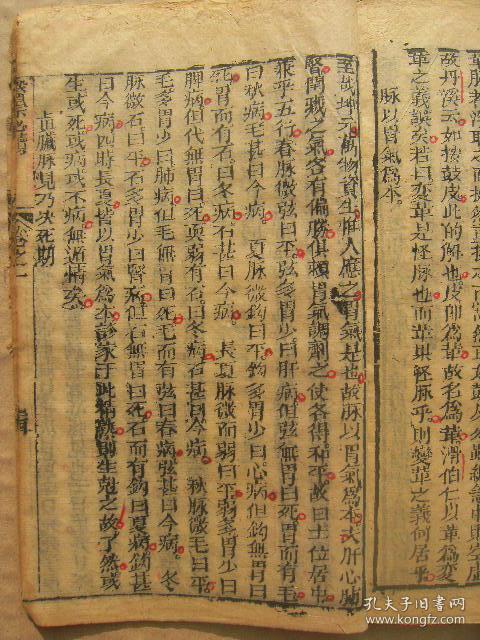 革脉
故丹溪云如按鼓皮此的解也皮即為革故名為革滑伯仁以革為变
革之義誤矣若曰变革是怪脉也而革果怪脉乎則變革之義何居乎
脉以胃氣為本
至哉坤元萬物資生惟人應之胃氣是也故脉以胃氣為本夫肝心肺
腎間藏之氣各有偏勝俱賴胃氣調劑之使各得和平故曰土位居中
兼乎五行春脉微弦曰平弦多胃少曰肝病但弦無胃曰死胃而有毛
曰秋病毛甚曰今病夏脉微鈎曰平鈎多胃少曰心病但鈎無胃曰
死胃而有石曰冬病石甚曰今病長夏脉微而弱曰平弱多胃少曰
脾病但代無胃曰死耎弱有石曰冬病石甚曰今病秋脉微毛曰平
毛多胃少曰肺病但毛無胃曰死毛而有弦曰春病弦甚曰今病冬
脉微石曰平石多胃少曰腎病但石無胃曰死石而有鈎曰夏病鈎甚
曰今病四時長夏皆以胃氣為本診家于此精熟則生尅之故了然或
生或死或病或不病無遁情矣
真臟脉見乃决死期
卷之一
孔夫子旧书网
www.kongfz.com